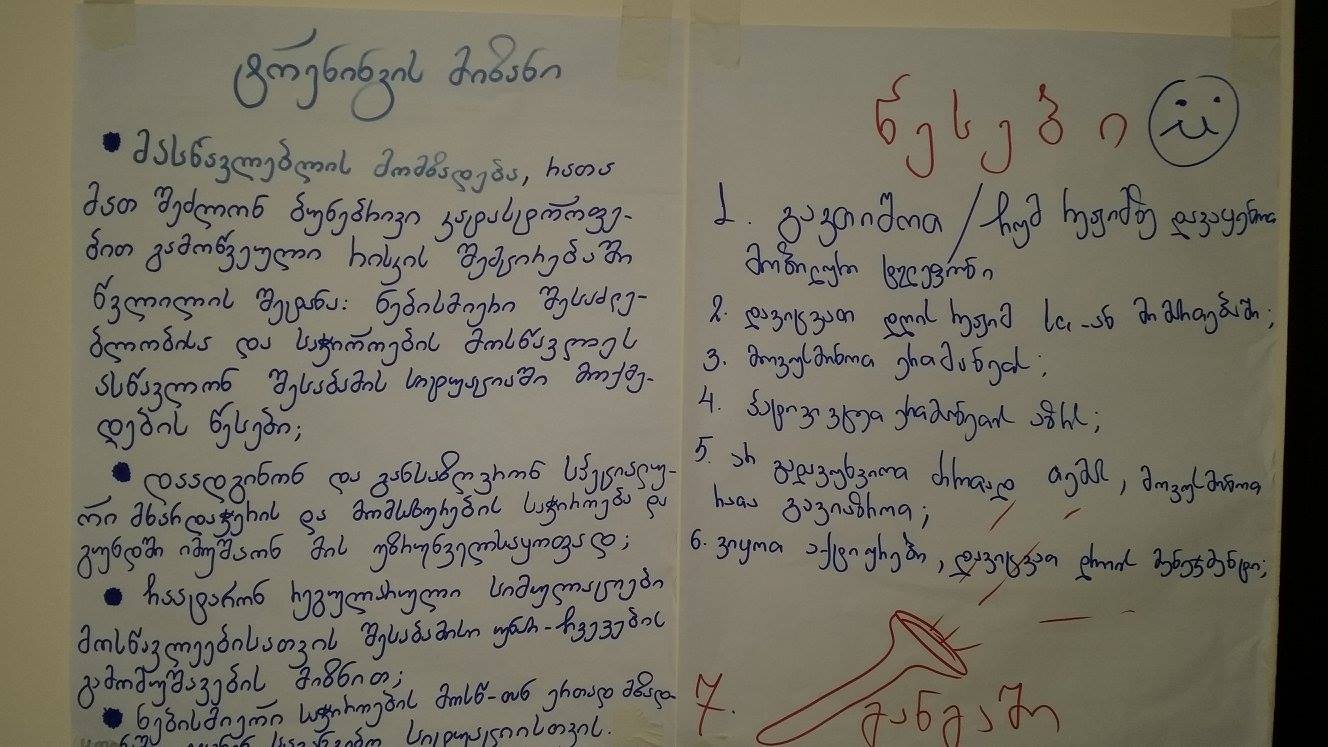 ტრენინგის მიზანი
• მასწავლებლის მომზადება, რათა
მათ შეძლონ ბუნებრივი კატასტროფე-
ბით გამოწვეული რისკის შემცირებაში
წვლილის შეტანა: ნებისმიერი შესაძლე-
ბლობისა და საჭიროების მოსწავლეს
ასწავლონ შესაბამის სიტუაციაში მოქმე-
დების წესები;
• დაადგინონ და განსაზღვრონ სპეციალუ-
რი მხარდაჭერის და მომსახურების საჭიროება და
გუნდში იმუშაონ მის უზრუნველსაყოფად;
• ჩაატარონ რეგულარული სიმულაციები
მოსწავლეებისათვის შესაბამისი უნარ-ჩვევების
გამომუშავების მიზნით;
• ნებისმიერი საჭიროების მოსწ-თან ერთად მზადა
სიტუაციისთვის.
წესები
1. გავთიშოთ / ჩუმ რეჟიმზე დავაყენოთ
მობილური ტელეფონი
2. დავიცვათ დღის რეჟიმ სა-ან მიმართებაში;
3. მოვუსმინოთ ერთმანეთს;
4. პატივი ვცეთ ერთმანეთის აზრს;
5. არ გადავუხვიოთ ძირითად თემას, მოვუსმინოთ
რათა გავიაზროთ;
6. ვიყოთ აქტიურები, დავიცვათ დროის მენეჯმენტი;
7. განგაში